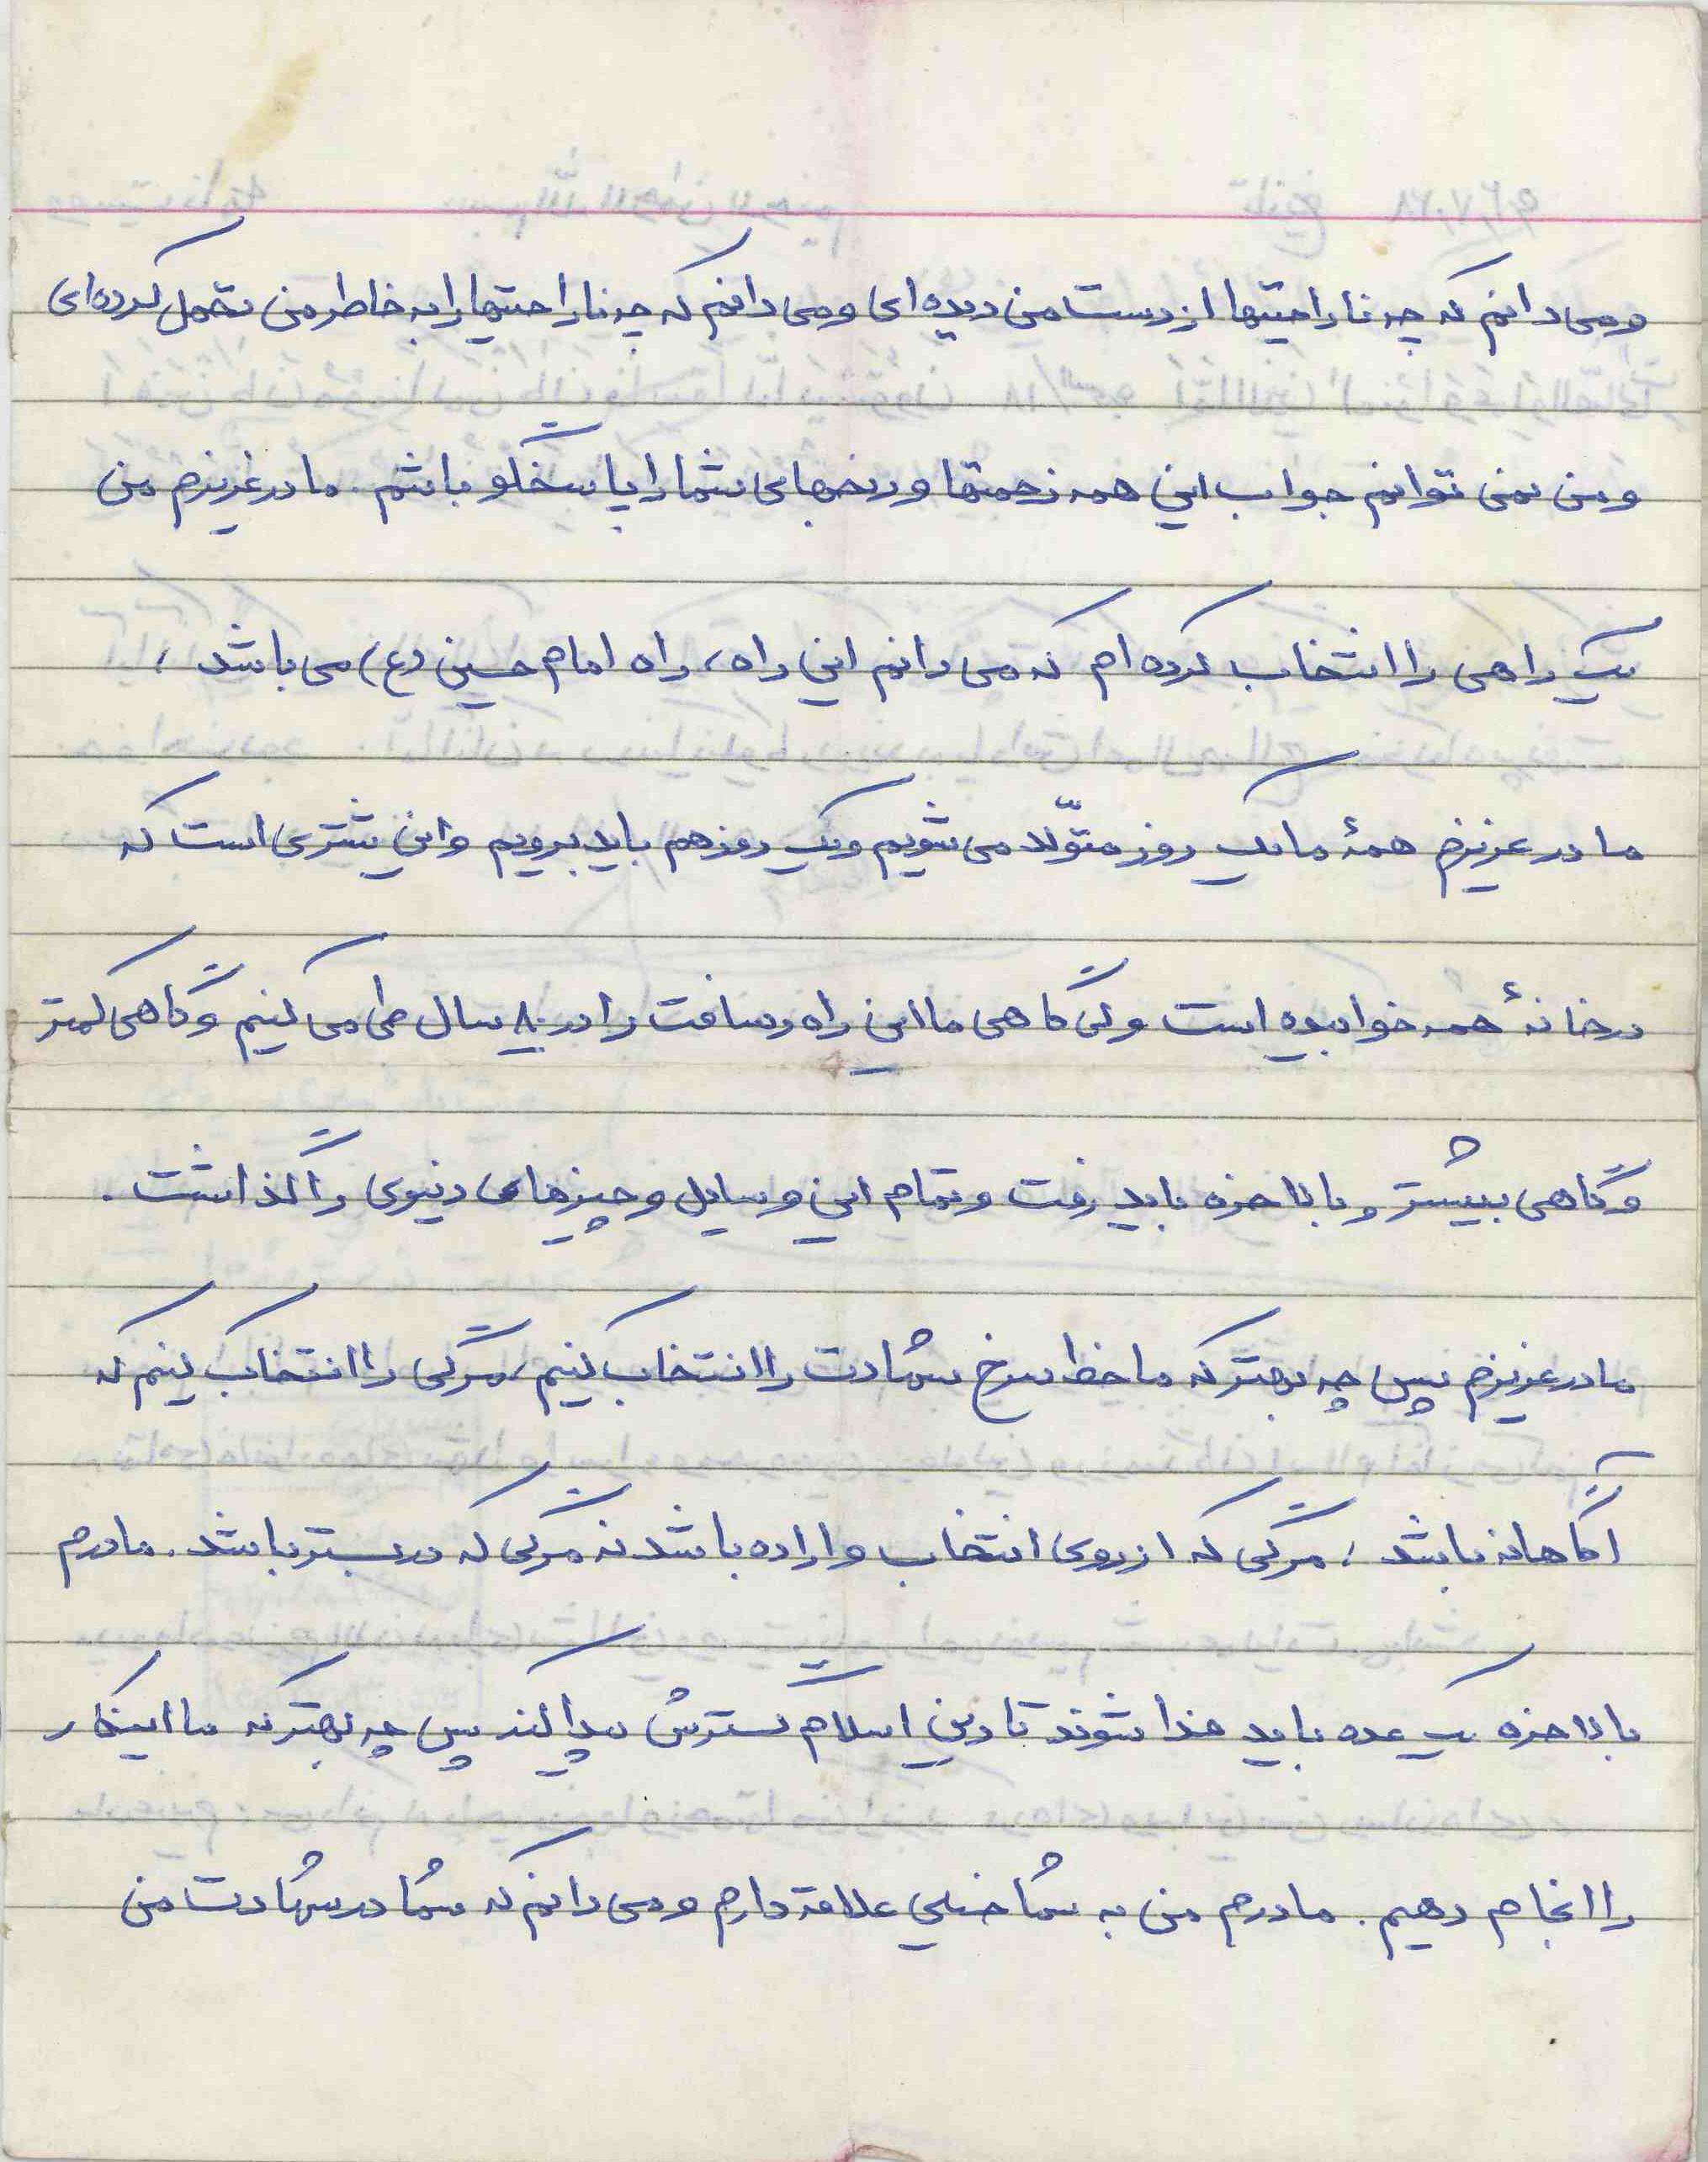 و می دانم که چه ناراحتیها از دست من دیده ای و می دانم که چه ناراحتیها را به خاطر من تحمل کرده ای
و من نمی توانم جواب این همه زحمتها و رنجهای شما را پاسخگو باشم. مادر عزیزم من
یک راهی را انتخاب کرده ام که می دانم این راه، راه امام حسین (ع) می باشد،
مادر عزیزم همهٔ ما یک روز متولّد می شویم و یک روز هم باید برویم و این شتری است که
در خانهٔ همه خوابیده است ولی گاهی ما این راه و مسافت را در ۸۰ سال طی می کنیم و گاهی کمتر
و گاهی بیشتر و بالاخره باید رفت و تمام این وسایل و چیزهای دنیوی را گذاشت.
مادر عزیزم پس چه بهتر که ما خط سرخ شهادت را انتخاب کنیم، مرگی را انتخاب کنیم که
آگاهانه باشد، مرگی که از روی انتخاب و اراده باشد نه مرگی که در بستر باشد. مادرم
بالاخره یک عده باید فدا شوند تا دین اسلام گسترش پیدا کند پس چه بهتر که ما اینکار
را انجام دهیم. مادرم من به شما خیلی علاقه دارم و می دانم که شما در شهادت من